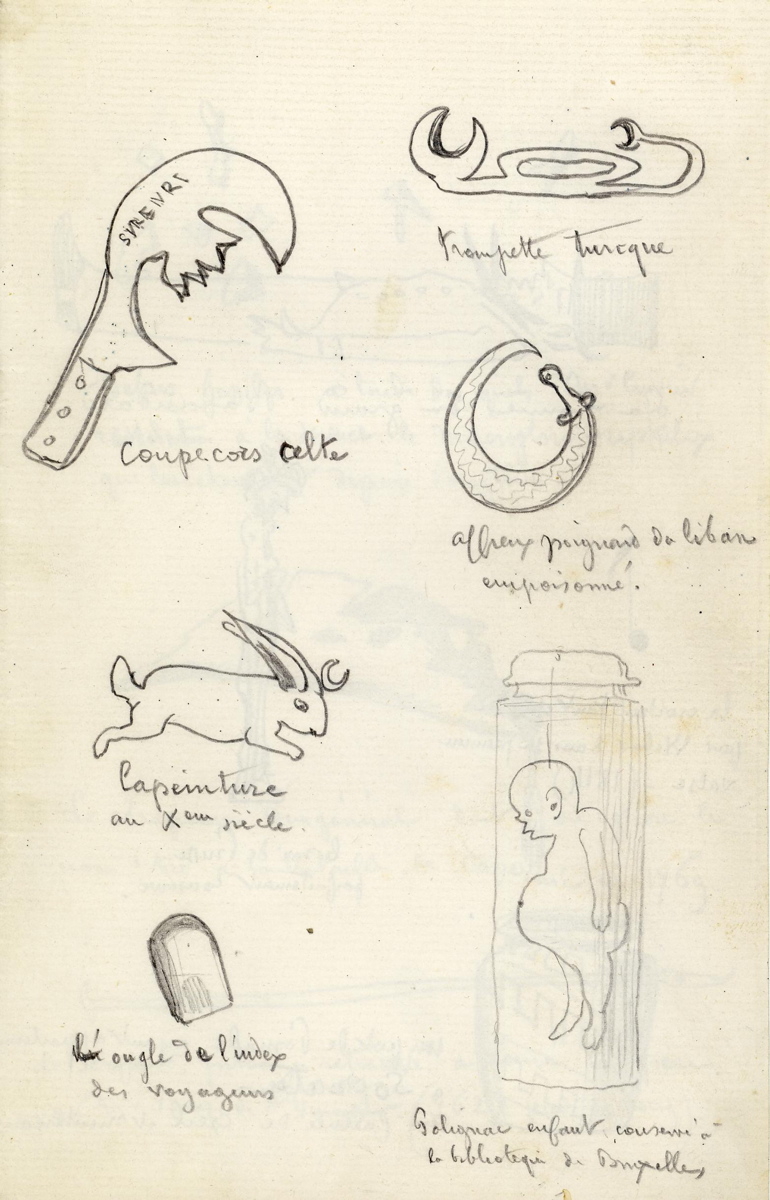 trompette turcque
coupe.cors celte
affreux poignard du liban
empoisonné.
lapeinture
au Xem siècle.
ongle de l'index
des voyageurs
Polignac enfant, conservé à
la bibliotequ de Bruxelles